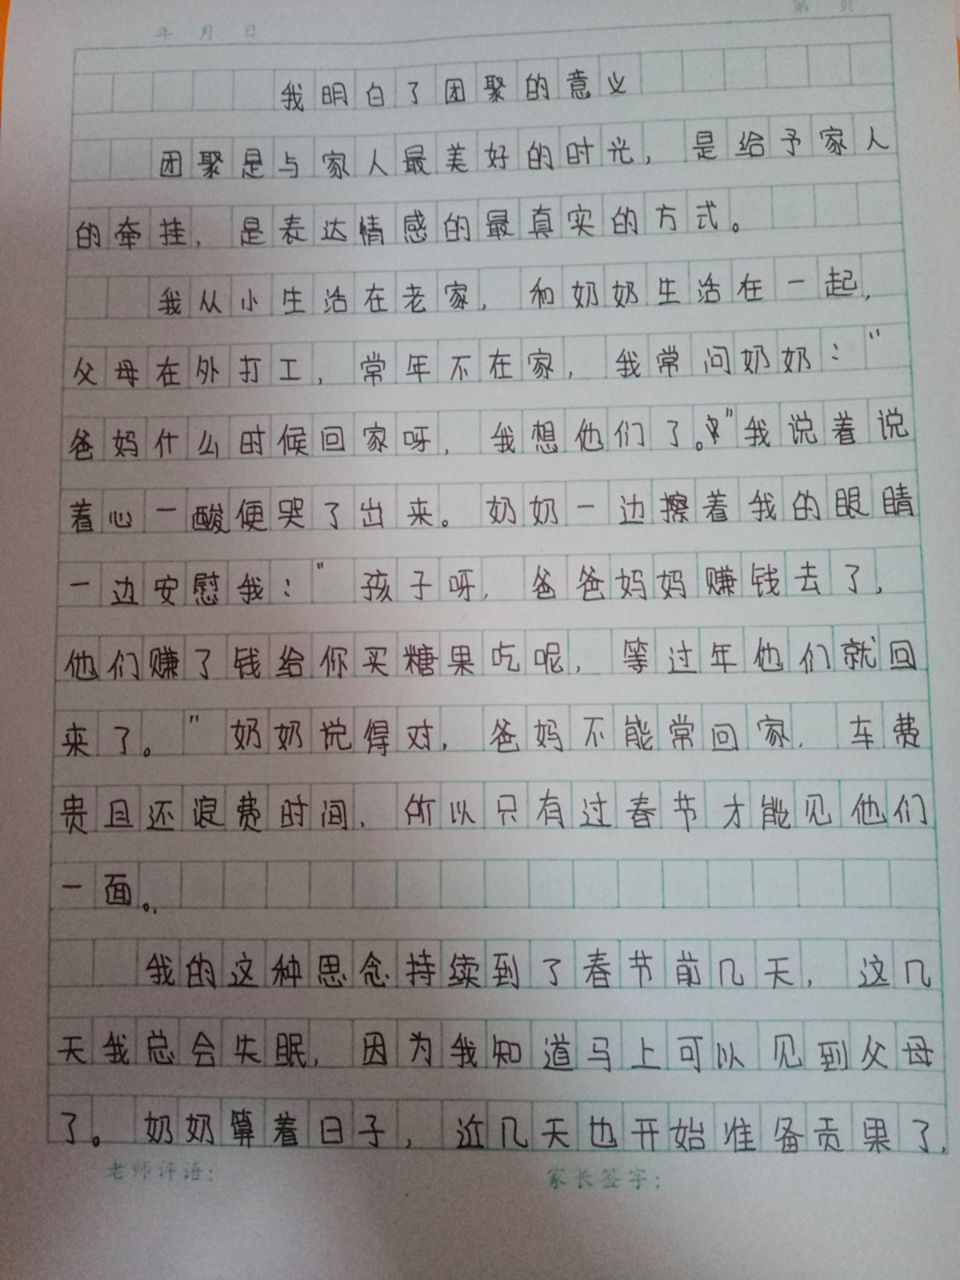 年 月 日 第 页
我明白了团聚的意义
团聚是与家人最美好的时光，是给予家人
的牵挂，是表达情感的最真实的方式。
我从小生活在老家，和奶奶生活在一起，
父母在外打工，常年不在家，我常问奶奶：“
爸妈什么时候回家呀，我想他们了。”我说着说
着心一酸便哭了出来。奶奶一边擦着我的眼睛
一边安慰我：“孩子呀，爸爸妈妈赚钱去了，
他们赚了钱给你买糖果吃呢，等过年他们就回
来了。”奶奶说得对，爸妈不能常回家，车费
贵且还浪费时间，所以只有过春节才能见他们
一面。
我的这种思念持续到了春节前几天，这几
天我总会失眠，因为我知道马上可以见到父母
了。奶奶算着日子，近几天也开始准备贡果了，
老师评语： 家长签字：